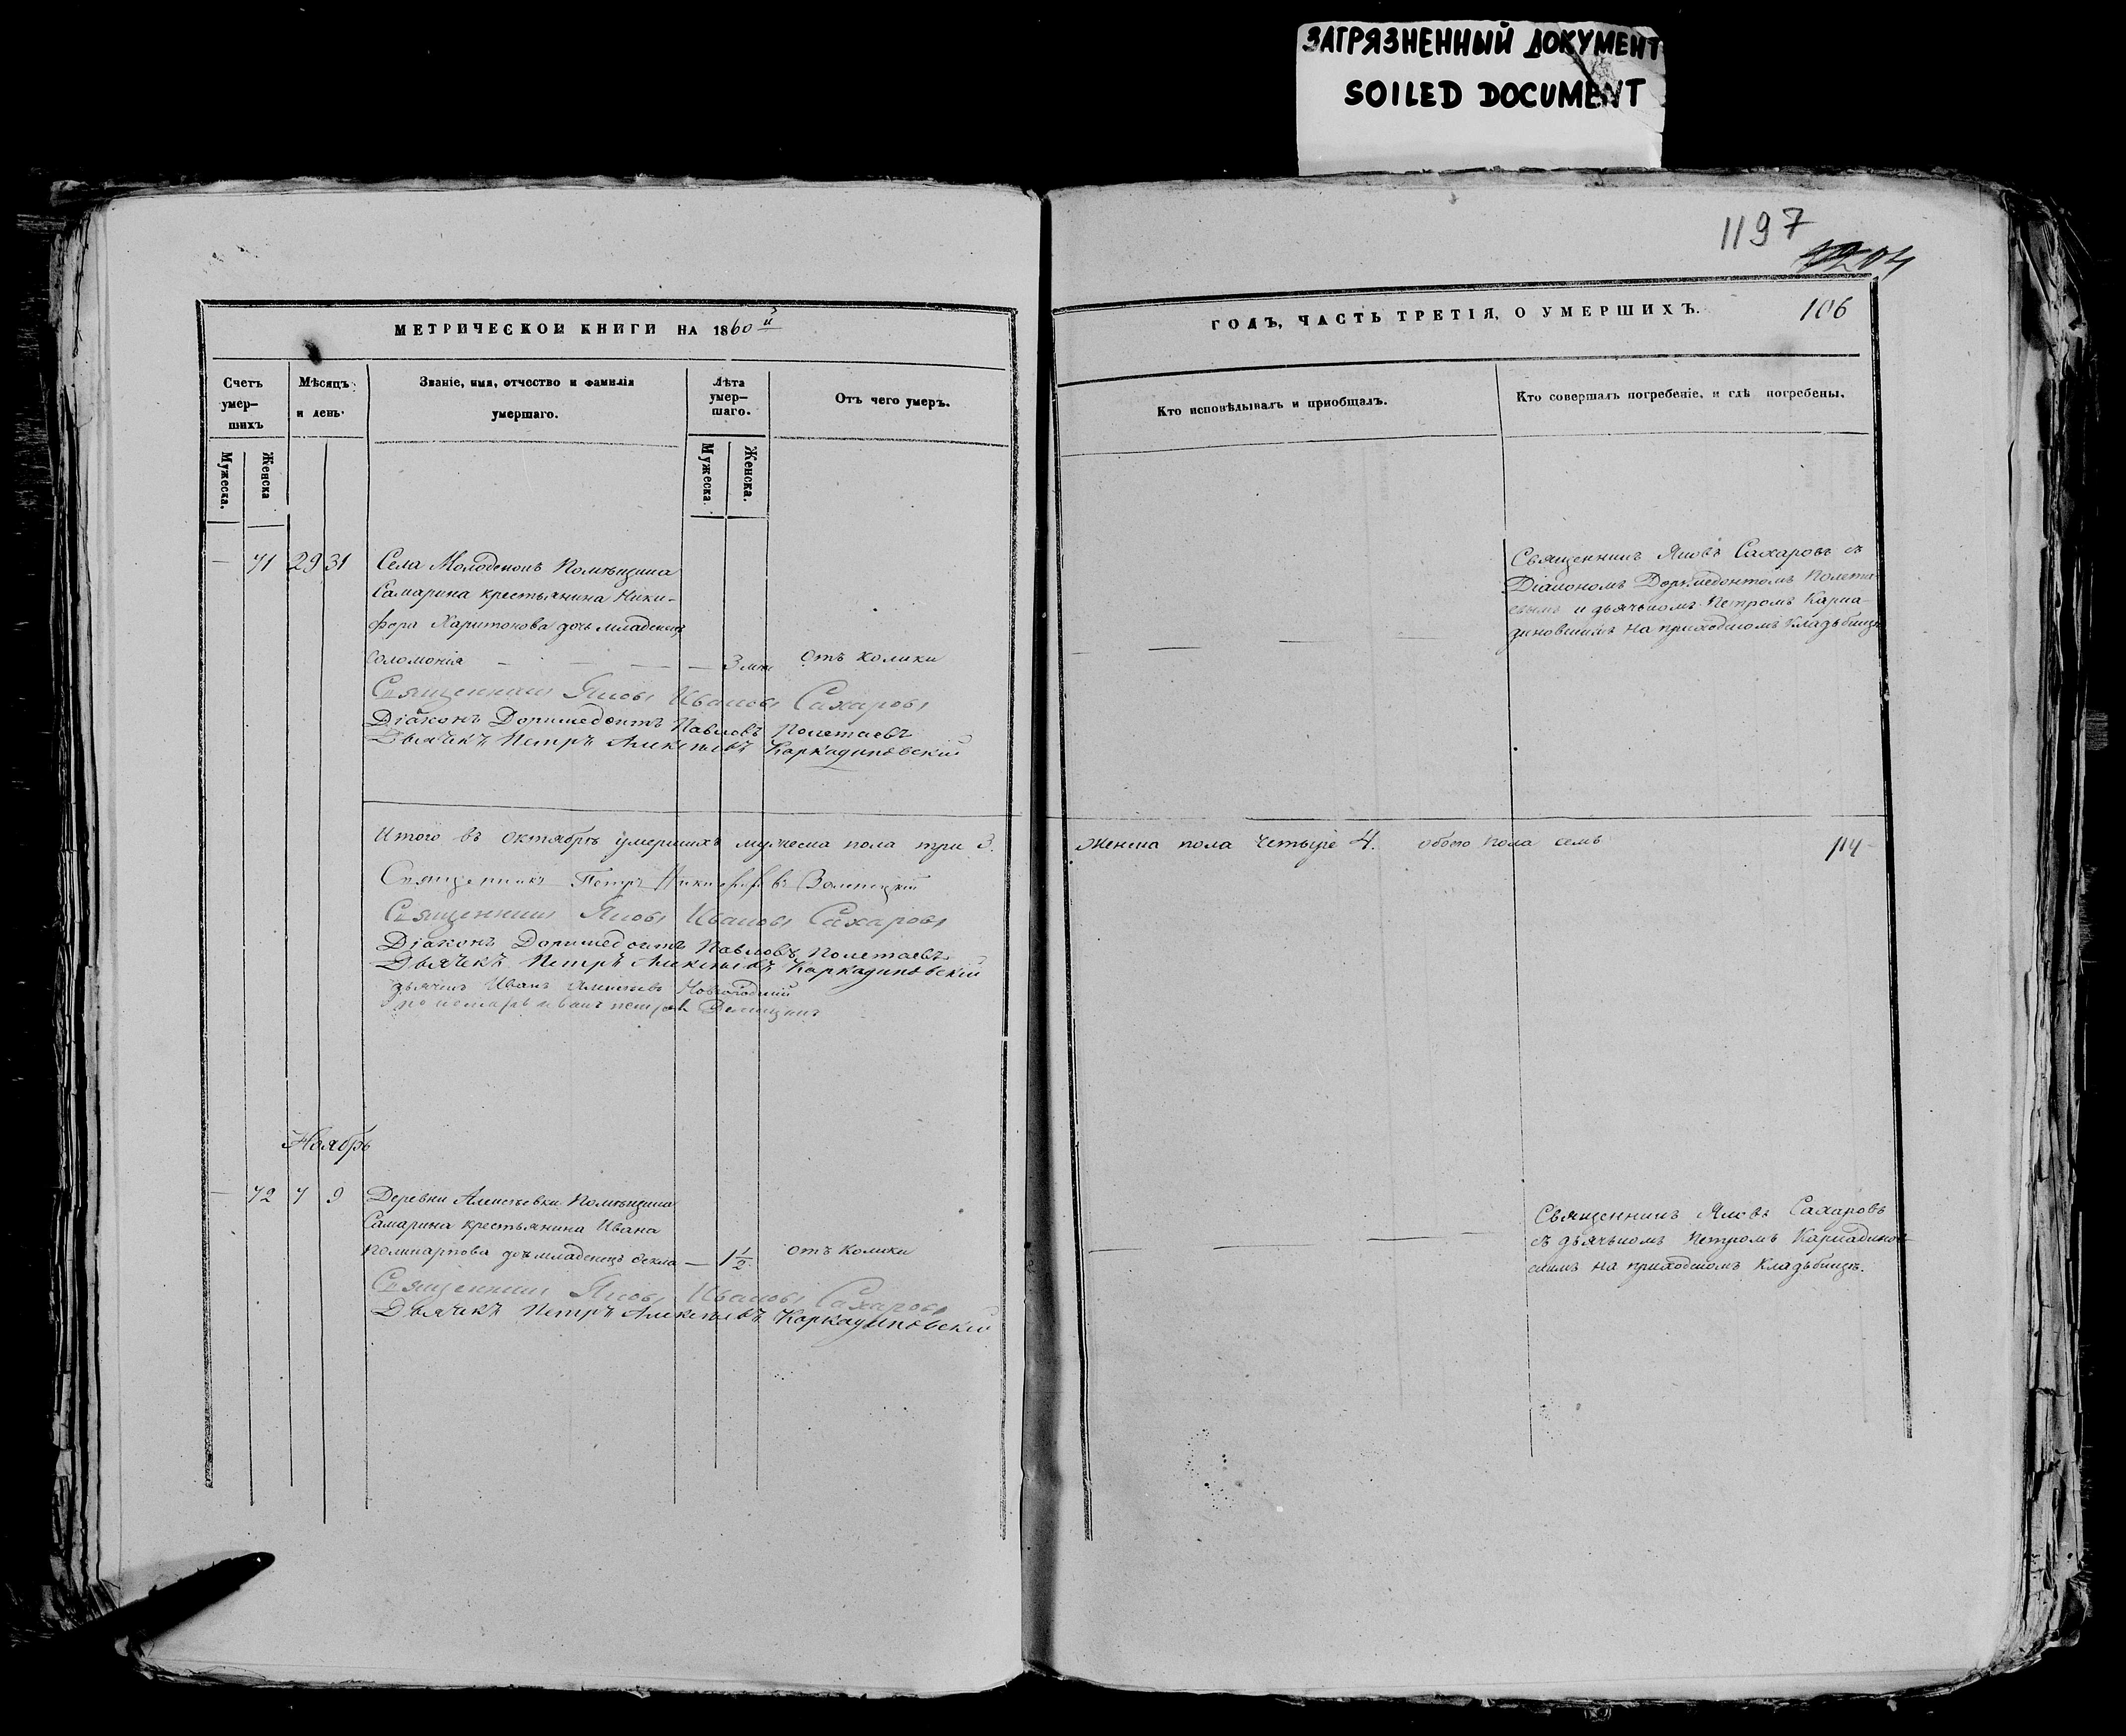 ЗАГРЯЗНЕННЫЙ ДОКУМЕНТ
SOILED DOCUMENT
1197
106
МЕТРИЧЕСКОЙ КНИГИ НА 1860й
ГОДЪ, ЧАСТЬ ТРЕТІЯ, О УМЕРШИХЪ.
Счетъ умер-шихъ
Мѣсяцъ и день.
Званіе, имя, отчество и фамилія умершаго.
Лѣта умер-шаго.
Отъ чего умеръ.
Кто исповѣдывалъ и пріобщалъ.
Кто совершалъ погребеніе, и гдѣ погребены.
Мужеска.
Женска
Мужеска.
Женска.
— 71 29 31 Села Молоденокъ Помѣщика
Самарина крестьянина Ники-
фора Харитонова дочь младенецъ
Соломонія — 3 мѣс отъ колики
Священникъ Яковъ Сахаровъ съ
Діакономъ Доримедонтомъ Полета-
евымъ и дьячкомъ Петромъ Карка-
диновскимъ на приходскомъ кладьбищѣ
Священникъ Яковъ Ивановъ Сахаровъ
Діаконъ Доримедонтъ Павловъ Полетаевъ
Дьячекъ Петръ Алексѣевъ Каркадиновскій
Итого въ октябрѣ умершихъ мужеска пола три 3. Женска пола четыре 4. обоего пола семь
Священникъ Петръ Никифоровъ
Священникъ Яковъ Ивановъ Сахаровъ
Діаконъ Доримедонтъ Павловъ Полетаевъ
Дьячекъ Петръ Алексѣевъ Каркадиновскій
дьячекъ Иванъ Алексѣевъ
пономарь Иванъ Петровъ
Ноябрь
— 72 7 9 Деревни Алексѣевки Помѣщика
Самарина крестьянина Ивана
Поликарпова дочь младенецъ Ѳекла — 1 1/2 отъ колики
Священникъ Яковъ Сахаровъ
съ дьячкомъ Петромъ Каркадинов-
скимъ на приходскомъ кладьбищѣ.
Священникъ Яковъ Ивановъ Сахаровъ
Дьячекъ Петръ Алексѣевъ Каркадиновскій